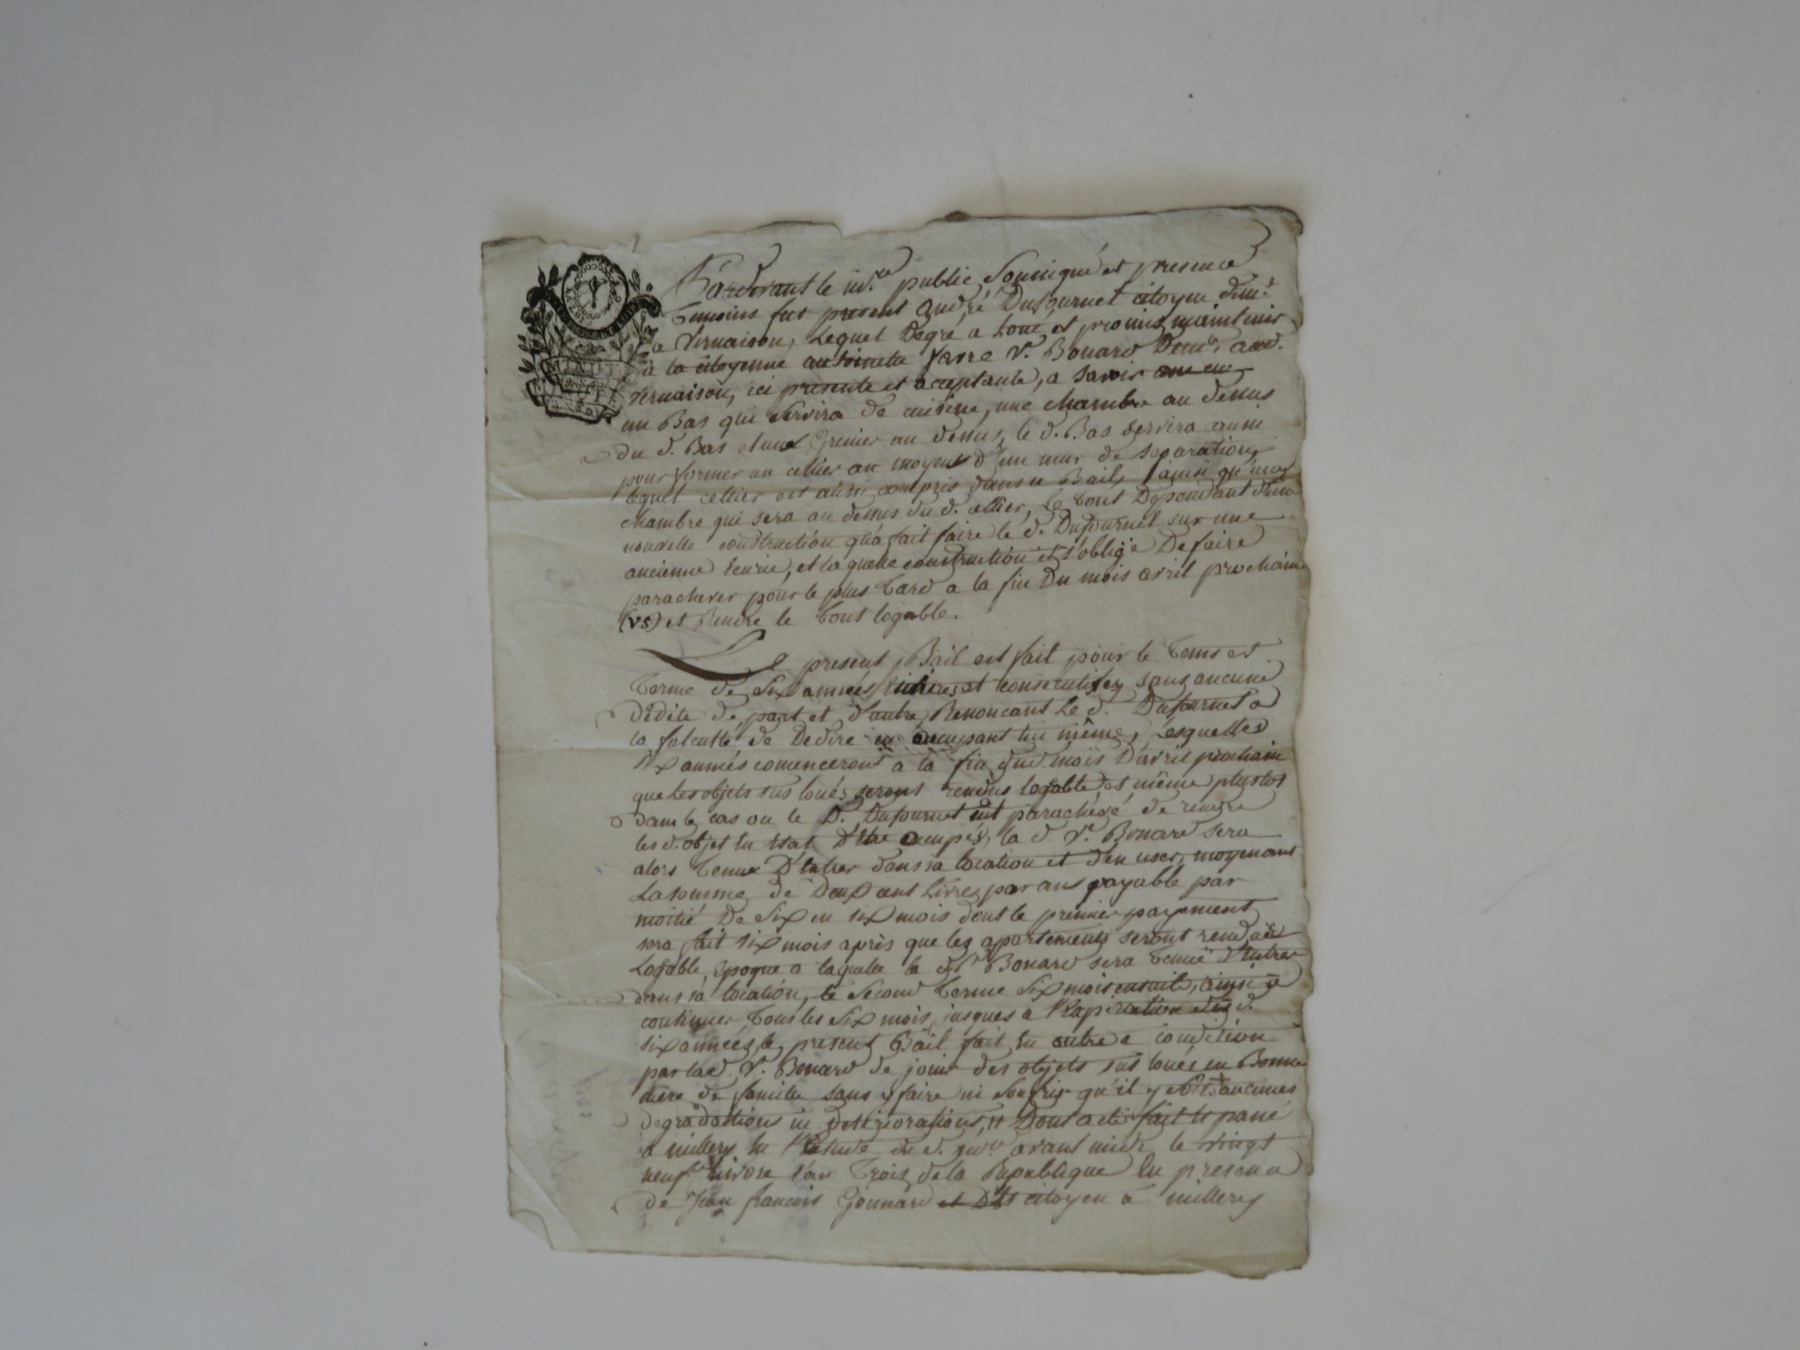 Pardevant le no.re public Soussigné et presence
temoins fut present André Dufournel citoyen dem.t
a Vernaison, Lequel Degré a Loué et promis maintenir
à la citoyenne antoinette favre v.e Bonard Dem.t aud.
Vernaison, ici presente et aceptante, a savoir
un Bas qui servira de cuisine, une chambre au dessus
du d. Bas et un Grenier au dessus, le d. Bas servira aussi
pour former un cellier au moyend D'un mur de separation,
lequel cellier est aussi compris dans ce Bail, ainsi qu'une
chambre qui sera au dessus du d. cellier, le tout Dependant d'une
nouvelle construction qu'a fait faire le d. Dufournel sur une
ancienne Ecurie, et laquelle construction il s'oblige De faire
parachever pour le plus Tard a la fin Du mois avril prochain
(vs) et Rendre le tout logeable.
Le present Bail est fait pour le tems et
terme de Six années entieres et consecutives sans aucune
Dédite de part et d'autre, Renoncant Le d. Dufournel a
la faculté de Dedire en occupant lui même, Lesquelles
six années comenceront a la fin du d. mois D'avril prochain
que les objets sus loués seront rendus logable et même plustot
dans le cas ou le D. Dufournel eut parachévé de rendre
les d. objet en Etat D'être occupés, la d v.e Bonard sera
alors tenue D'entrer dans sa location et d'en user, moyenant
La somme de Deux cent Livres par ans payable par
moitié De Six en six mois dont le premier payement
sera fait six mois après que les apartements seront rendus
Logable, epoque a laquelle la d v.e Bonard sera tenue D'entrer
dans sa location, le Second terme Six mois ensuite, ainsi a
continuer tous les Six mois jusques a l'Expiration des d.
six années, le present Bail fait en outre a condition
par la d. v.e Bonard de jouir des objets sus loués en Bonne
mere de famille sans y faire ni Soufrir qu'il y soit fait aucunes
degradations ni deteriorations, Dont acte fait et passé
a millery en l'Etude du d. no.re avant midi le vingt
neuf nivose l'an Trois de la Republique En presence
de Jean françois Gonnard citoyen à millery